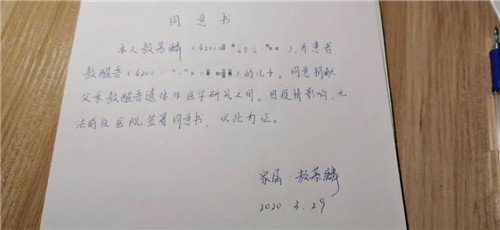 同意书
本人敖慕麟（4202 ），系患者
敖醒吾（4201 ）的儿子。同意捐献
父亲敖醒吾遗体作医学研究之用。因疫情影响，无
法前往医院签署同意书，以此为证。
家属：敖慕麟
2020 3.29